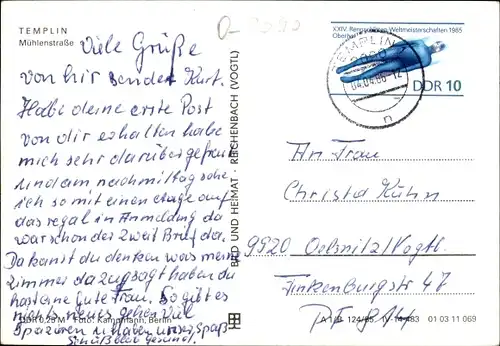 TEMPLIN
Mühlenstraße
Viele Grüße
von hir sendet Kurt.
Habe deine erste Post
von dir erhalten habe
mich sehr darüber gefreut
und am nachmittag sehe
ich so mit einen etage auf
das regal in Anmeldung da
war schon der zweit Brief da.
Da kanst du denken was mein
zimmer dazu gsagt haben du
hast eine Gute Frau. So gibt es
nichts neues gehen viel
Spazieren u. haben unser Spaß
Schüß bleib Gesund.
DDR 0,25 M Foto: Kampmann, Berlin
BILD UND HEIMAT · REICHENBACH (VOGTL)
XXIV. Rennschlitten-Weltmeisterschaften 1985
Oberhof
DDR 10
TEMPLIN
2090
04.04.86-12
n
An Frau
Christa Kühn
9920 Oelsnitz/Vogtl.
Finkenburgstr 47
01 03 11 069